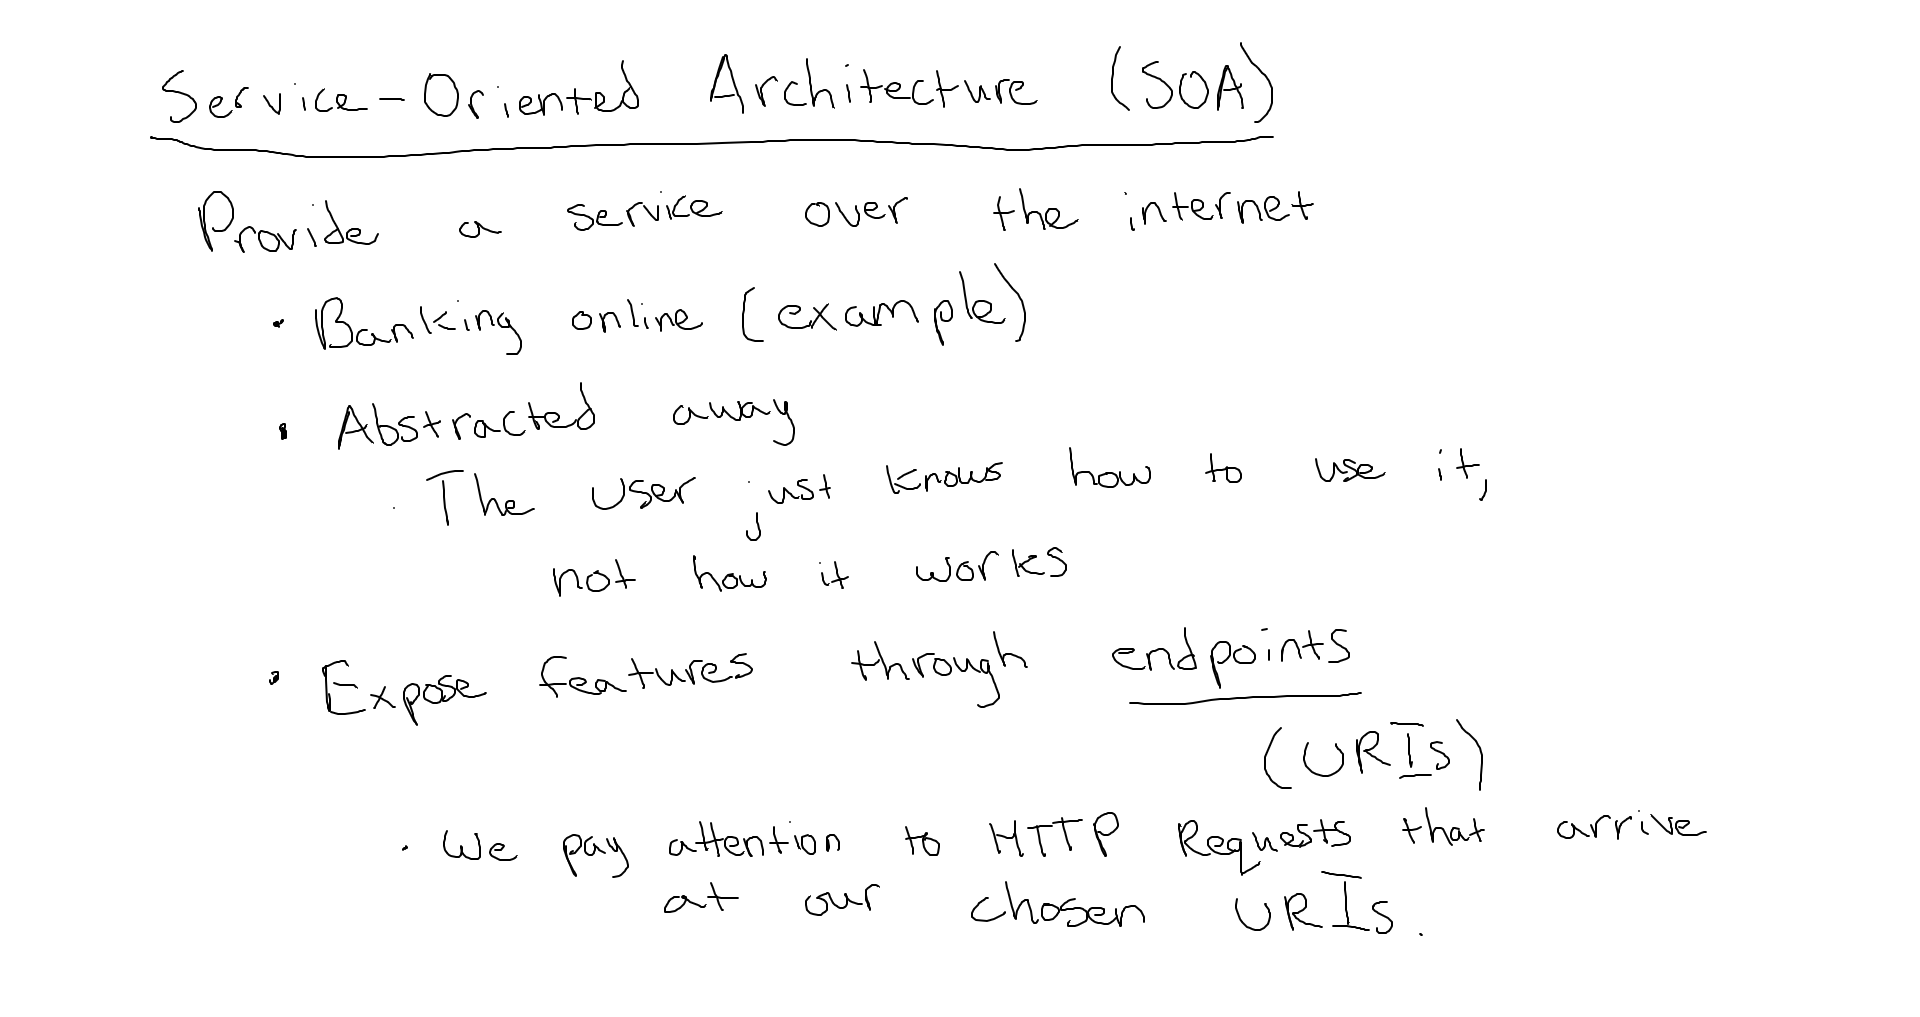 Service-Oriented Architecture (SOA)
Provide a service over the internet
• Banking online (example)
• Abstracted away
The user just knows how to use it,
not how it works
• Expose features through endpoints
(URIs)
• We pay attention to HTTP Requests that arrive
at our chosen URIs.